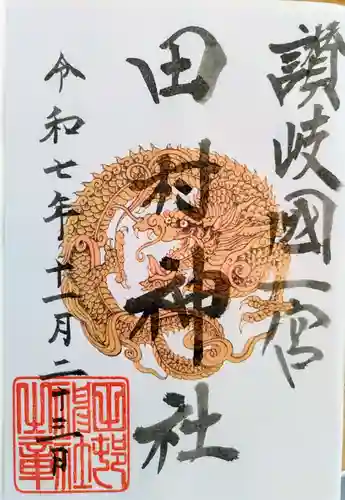 讃岐國一宮
田村神社
令和七年十一月二十三日
田邨
神社
之章